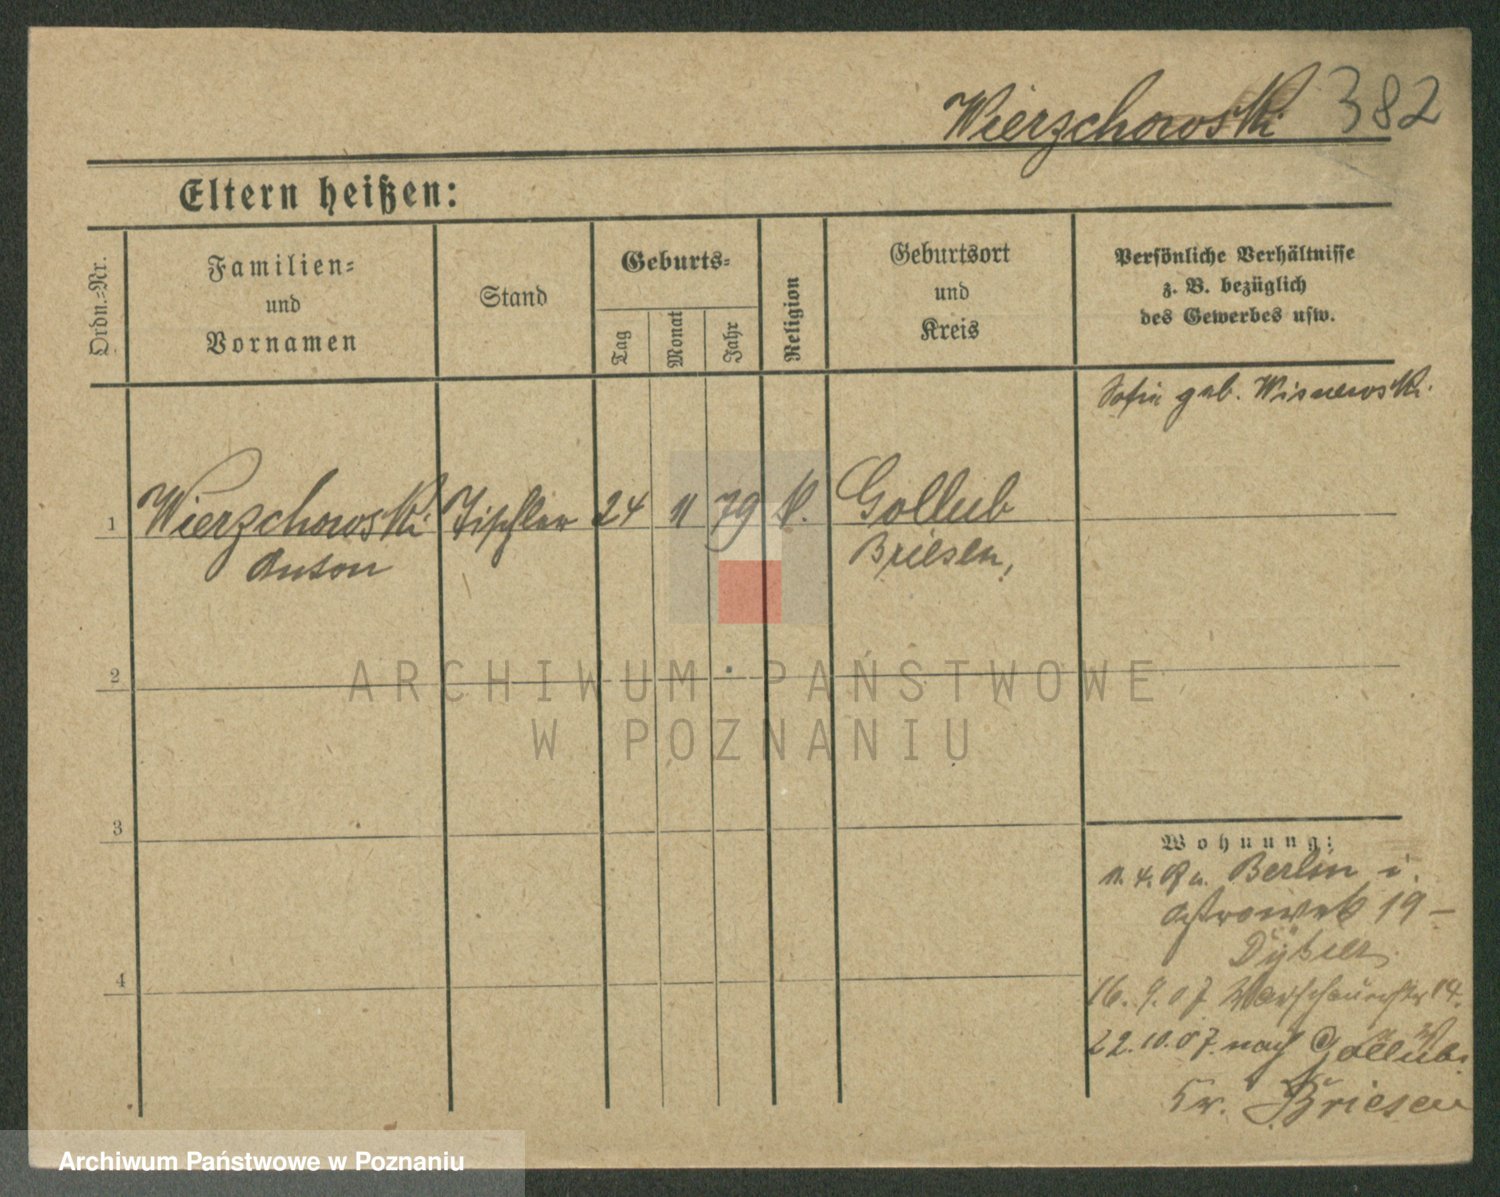 Wierzchowski 382
Eltern heißen:
Ordn.-Nr.
Familien-
und
Vornamen
Stand
Geburts-
Tag
Monat
Jahr
Religion
Geburtsort
und
Kreis
Persönliche Verhältnisse
z. B. bezüglich
des Gewerbes usw.
Sofie geb. Wisnewski.
1 Wierzchowski Tischler 24 11 79 k. Gollub
Anton Briesen,
2
3
4
Wohnung:
Berlin i.
Ostrowek 19 –
16. 9. 07 Warschauerstr 14.
22. 10. 07. nach Gollub.
Kr. Briesen
ARCHIWUM PAŃSTWOWE
W POZNANIU
Archiwum Państwowe w Poznaniu